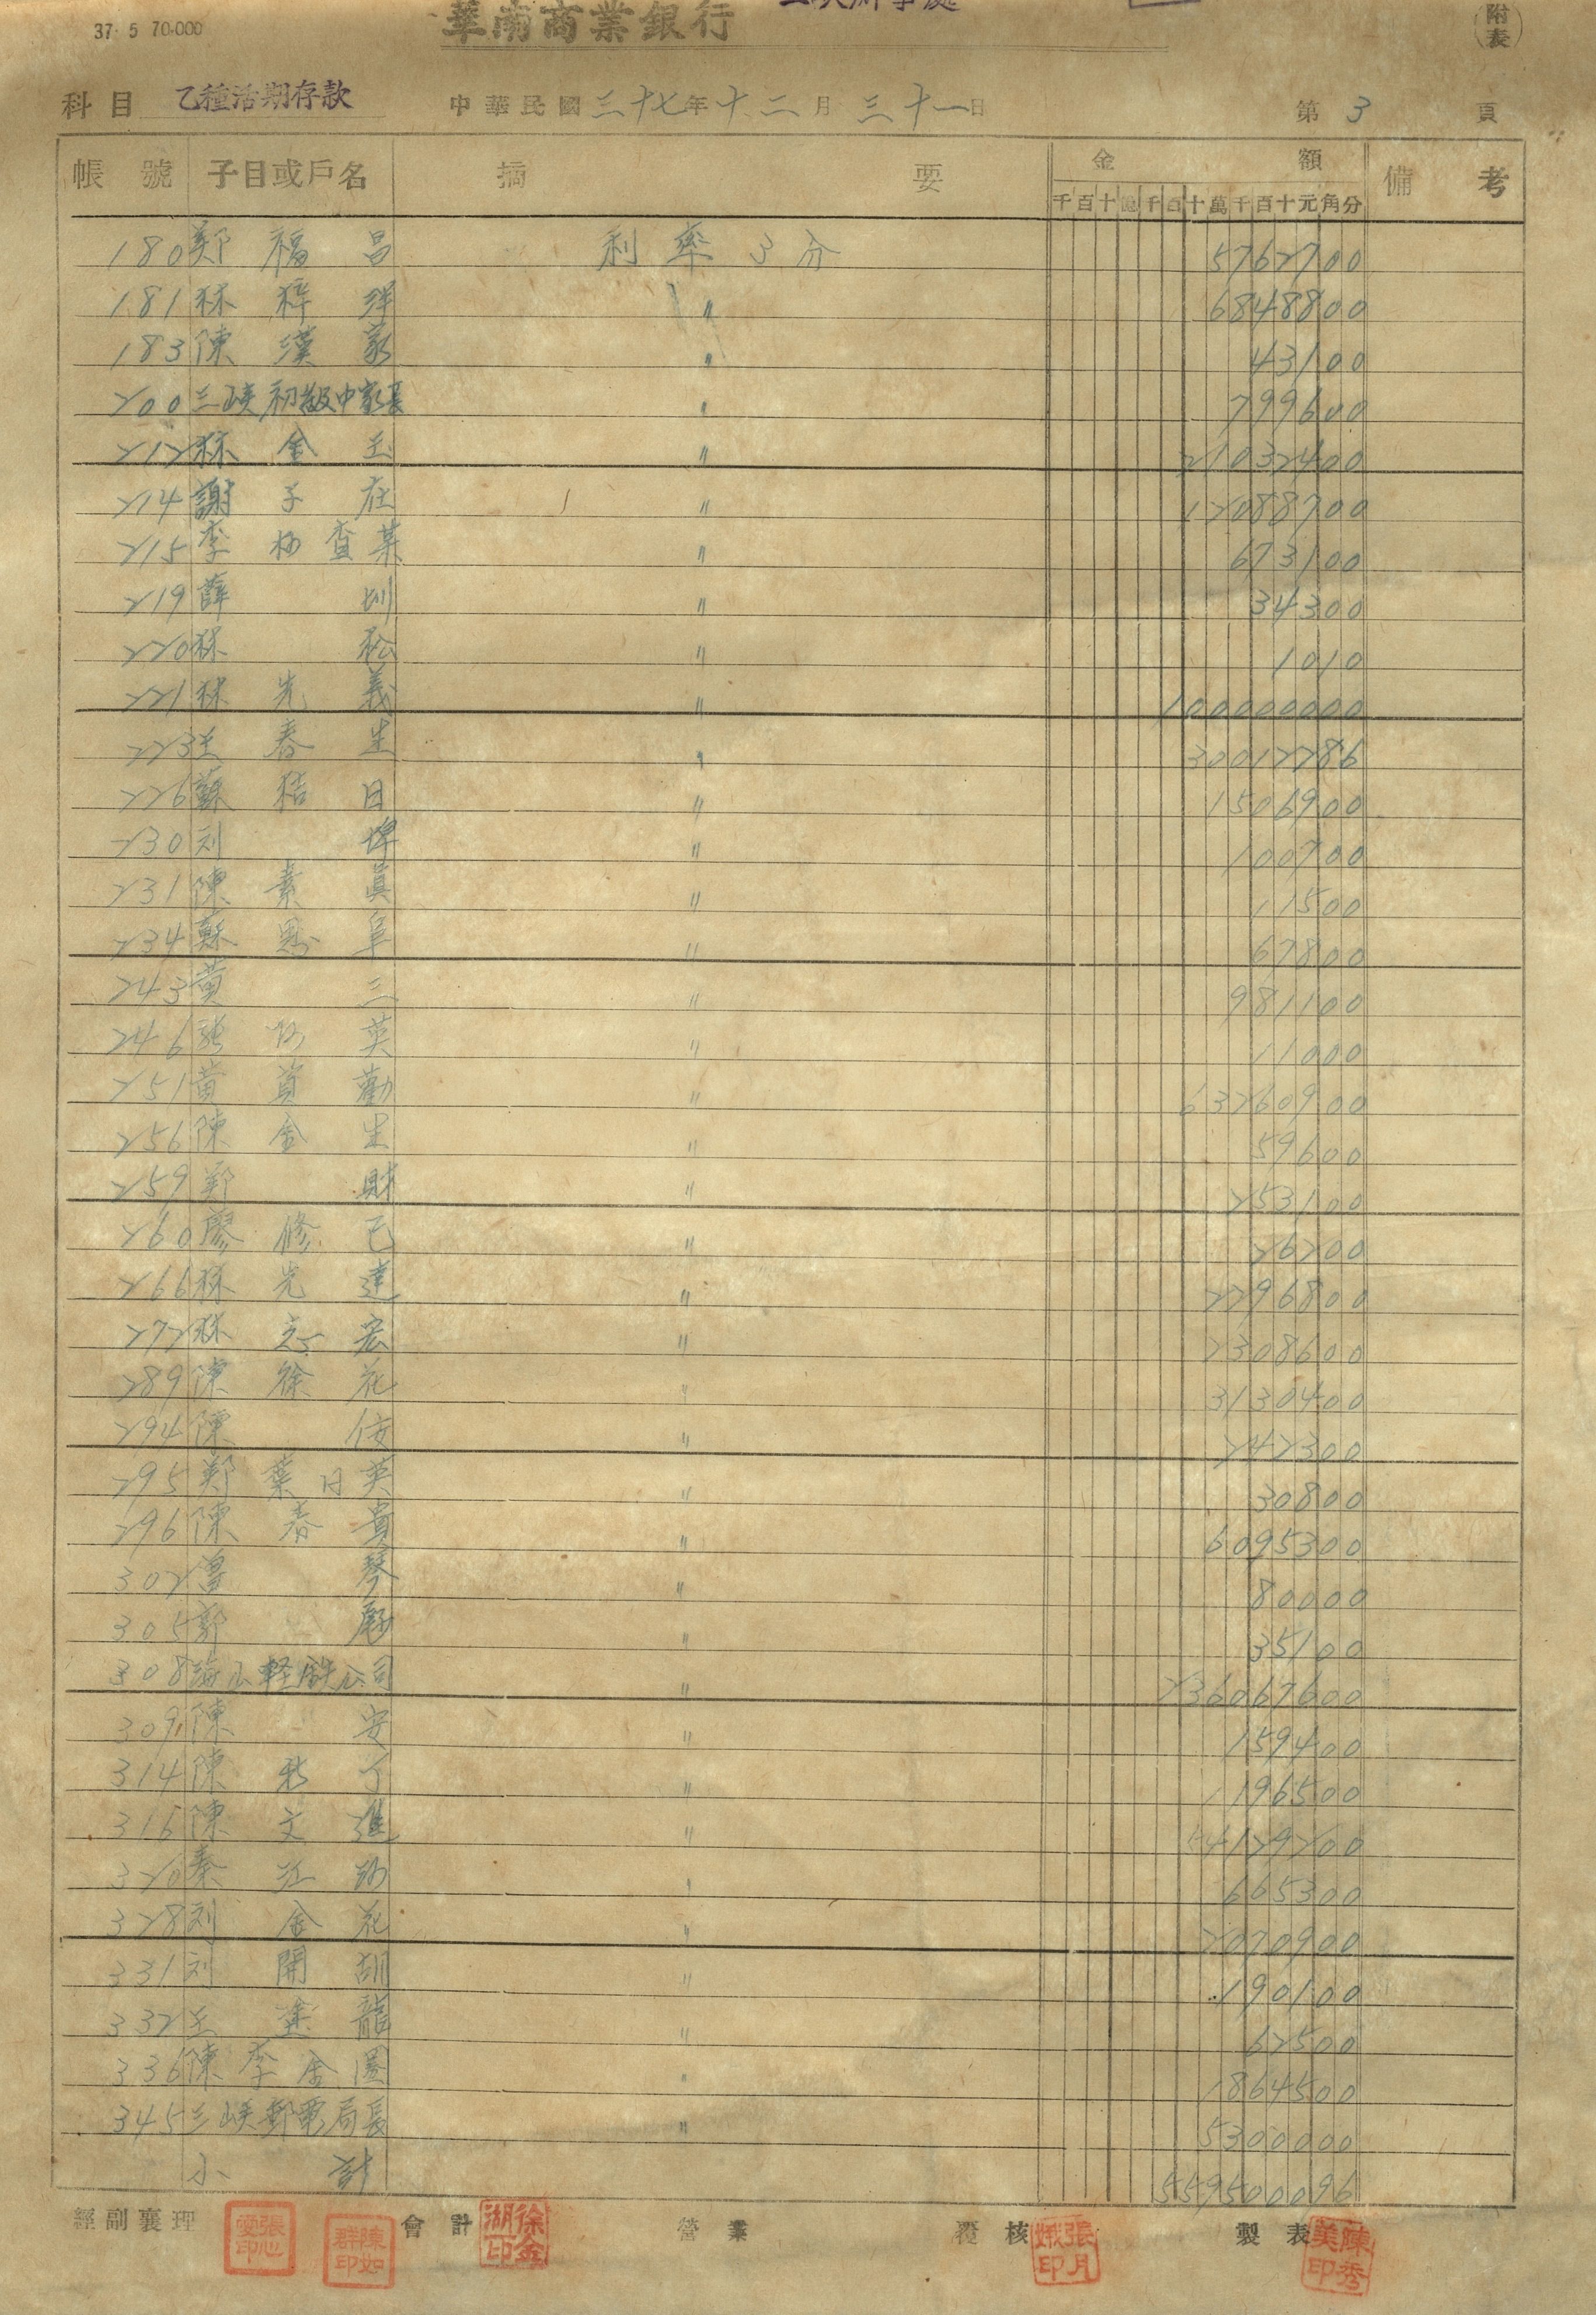 37 5 70.000
華南商業銀行
附表
科目 乙種活期存款 中華民國三十七年十二月三十一日 第3頁
帳號 子目或戶名 摘要 金額 備考
千百十億千百十萬千百十元角分
180 鄭福昌 利率3分 5762700
181 林 〃 6848800
183 陳漢 〃 43100
200 三峽初級中家長 〃 799600
212 林金玉 〃 21032400
214 謝子在 〃 12088700
215 李 葉 〃 673100
219 薛圳 〃 34300
220 林松 〃 1010
221 林光義 〃 100000000
223 王春生 〃 30012286
226 蘇 日 〃 1506900
230 刘 〃 100700
231 陳素真 〃 11500
234 蘇 〃 67800
243 黃三 〃 981100
246 張 英 〃 11000
251 黃 勸 〃 63260900
256 陳金生 〃 59600
259 鄭財 〃 253100
260 廖修己 〃 26200
266 林光達 〃 2296800
272 林 宏 〃 2308600
289 陳徐花 〃 3130400
294 陳 〃 242300
295 鄭葉日英 〃 30800
296 陳春貴 〃 6095300
302 曾琴 〃 80000
305 郭 〃 35100
308 海山軽鉄公司 〃 236067600
309 陳安 〃 159400
314 陳 〃 1196500
316 陳文進 〃 54129200
320 秦江 〃 665300
328 刘金花 〃 2070900
331 刘開 〃 190100
332 王塗龍 〃 62500
336 陳李 〃 1864500
345 三峽郵電局長 〃 5300000
小計 559500096
經副襄理 會計 營業 覆核 製表
張心雯印
陳如群印
徐金湖印
張月娥印
陳秀美印